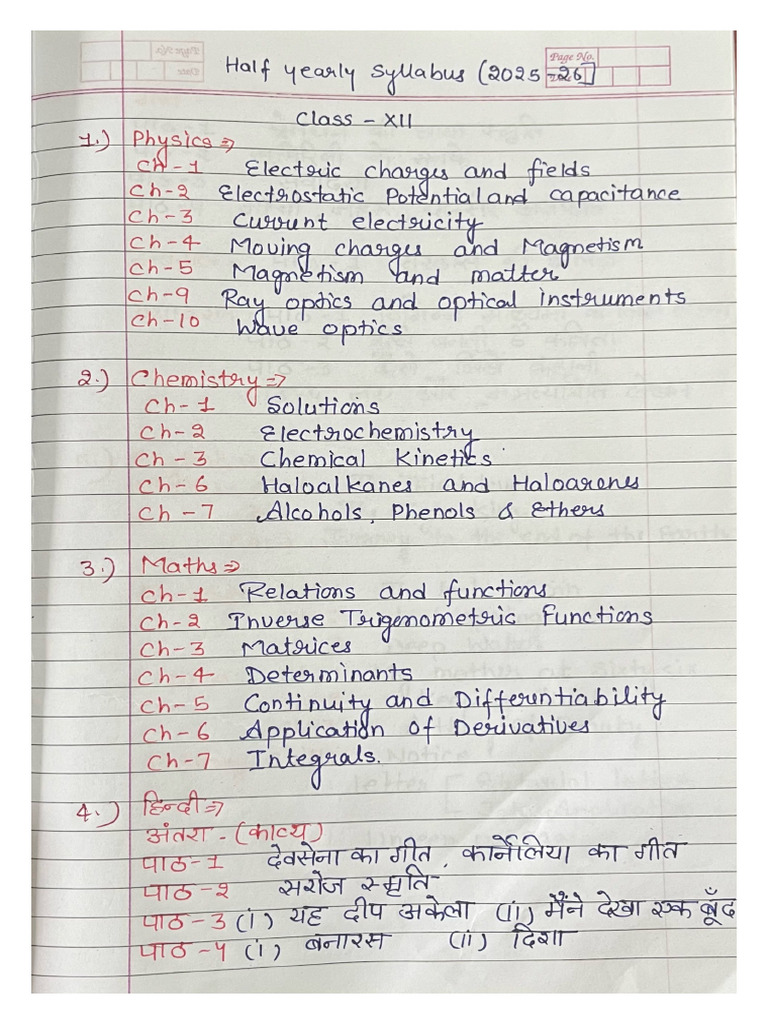 Page No.
Half yearly Syllabus (2025-26)
Class - XII
1.) Physics ⇒
Ch-1 Electric charges and fields
Ch-2 Electrostatic Potential and capacitance
Ch-3 Current electricity
Ch-4 Moving charges and Magnetism
Ch-5 Magnetism and matter
Ch-9 Ray optics and optical instruments
Ch-10 Wave optics
2.) Chemistry ⇒
Ch-1 Solutions
Ch-2 Electrochemistry
Ch-3 Chemical Kinetics
Ch-6 Haloalkanes and Haloarenes
Ch-7 Alcohols, Phenols & Ethers
3.) Maths ⇒
Ch-1 Relations and functions
Ch-2 Inverse Trigonometric Functions
Ch-3 Matrices
Ch-4 Determinants
Ch-5 Continuity and Differentiability
Ch-6 Application of Derivatives
Ch-7 Integrals.
4.) हिन्दी ⇒
अंतरा - (काव्य)
पाठ-1 देवसेना का गीत, कार्नेलिया का गीत
पाठ-2 सरोज स्मृति
पाठ-3 (i) यह दीप अकेला (ii) मैंने देखा एक बूँद
पाठ-4 (i) बनारस (ii) दिशा